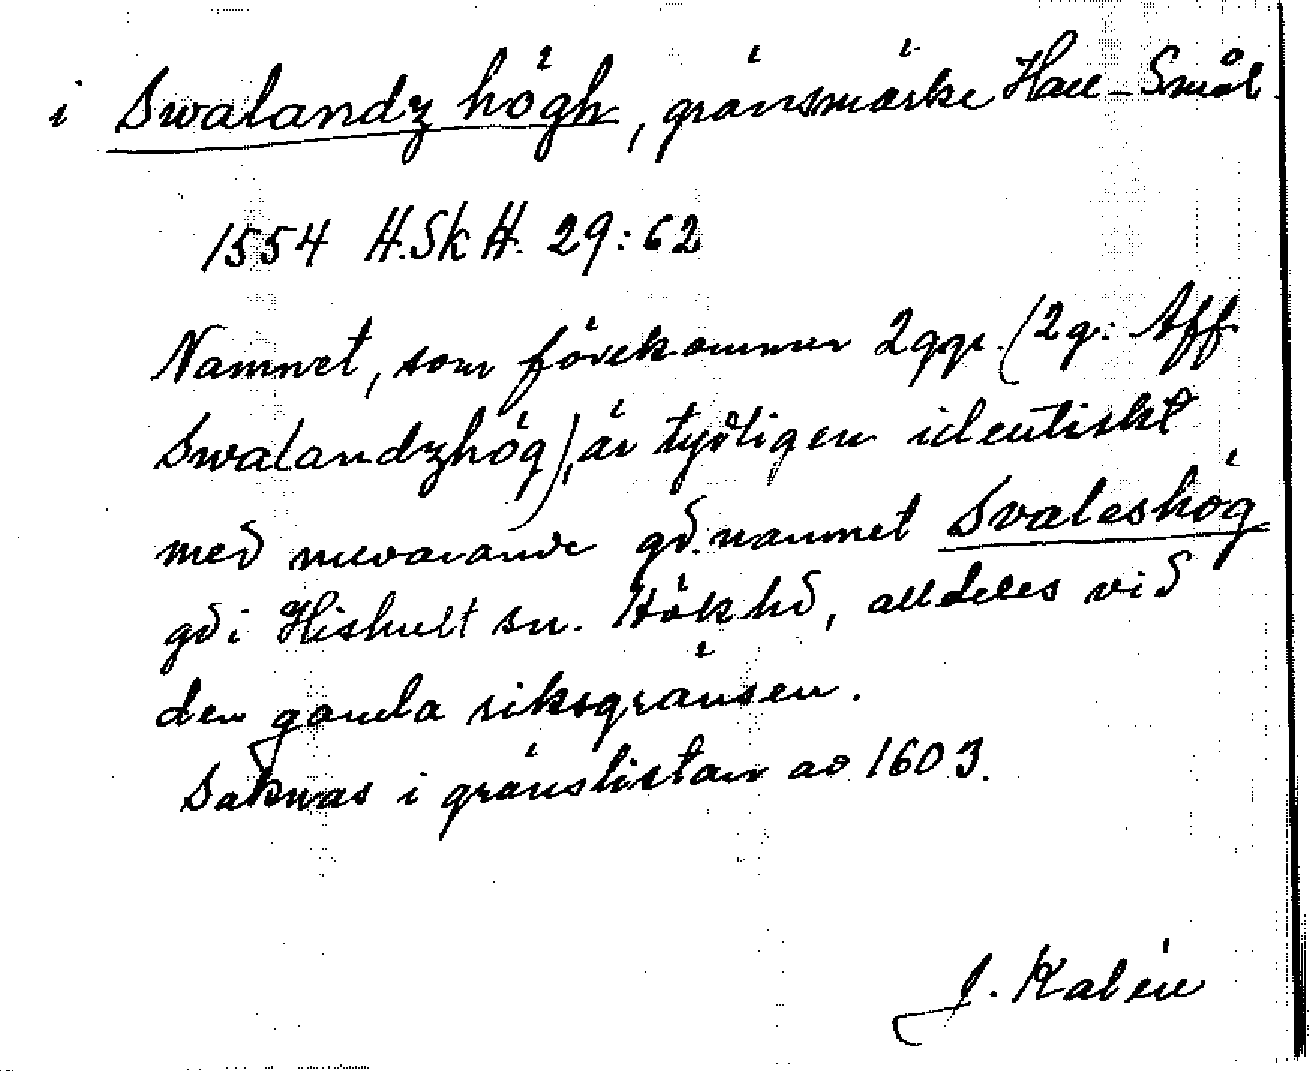 i Swalandz högh, gränsmärke Hall-Smål.
1554 H.Sk H. 29:62
Namnet, som förekommer 2 ggr. (2 g: Aff
Swalandzhög), är tydligen identiskt
med nuvarande gd.namnet Svaleshög
gd i Hishult sn. Hök hd, alldeles vid
den gamla riksgränsen.
Saknas i gränslistan av 1603.
J. Kalén